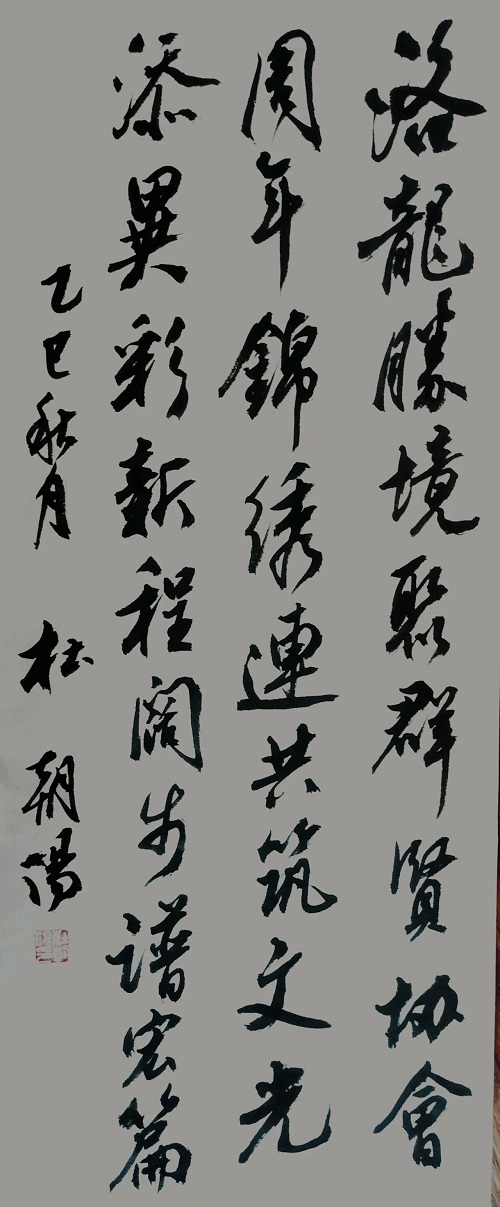 洛龍勝境聚群賢協會
周年錦绣連共筑文光
添異彩新程阔步譜宏篇
乙巳秋月 杜朝陽